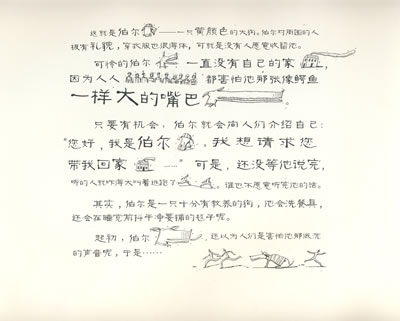 这就是伯尔——一只黄颜色的大狗。伯尔对周围的人
很有礼貌，穿衣服也很得体，可就是没有人愿意收留他。
可怜的伯尔一直没有自己的家，
因为人人都害怕他那张像鳄鱼
一样大的嘴巴。
只要有机会，伯尔就会向人们介绍自己：
“您好，我是伯尔，我想请求您
带我回家……”可是，还没等他说完，
听的人就吓得大叫着逃跑了。谁也不愿意听完他的话。
其实，伯尔是一只十分有教养的狗，他会洗餐具，
还会在睡觉前
起初，伯尔还以为人们是害怕他那低沉
的声音呢，于是……